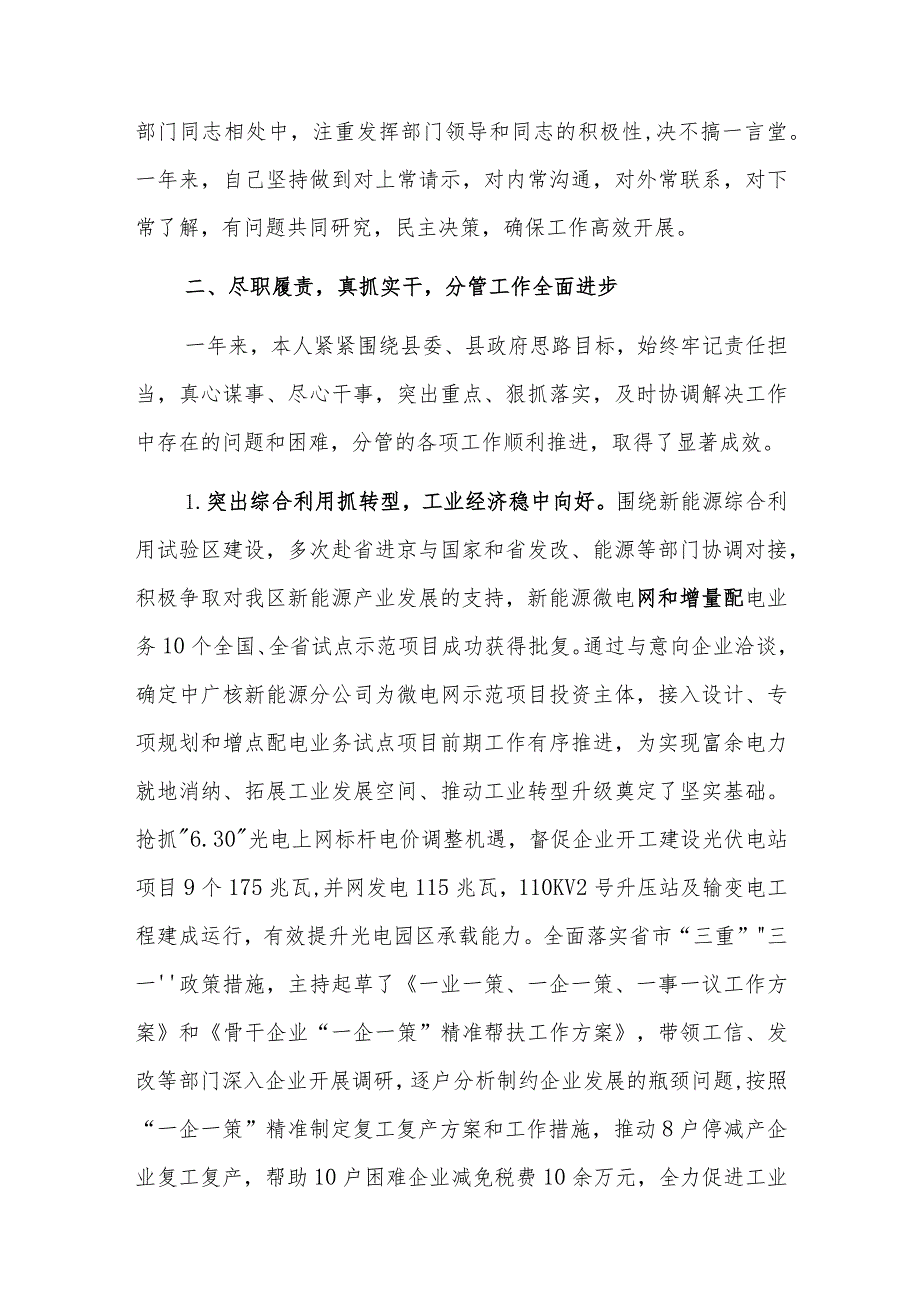 部门同志相处中，注重发挥部门领导和同志的积极性,决不搞一言堂。
一年来，自己坚持做到对上常请示，对内常沟通，对外常联系，对下
常了解，有问题共同研究，民主决策，确保工作高效开展。
二、尽职履责，真抓实干，分管工作全面进步
一年来，本人紧紧围绕县委、县政府思路目标，始终牢记责任担
当，真心谋事、尽心干事，突出重点、狠抓落实，及时协调解决工作
中存在的问题和困难，分管的各项工作顺利推进，取得了显著成效。
1.突出综合利用抓转型，工业经济稳中向好。围绕新能源综合利
用试验区建设，多次赴省进京与国家和省发改、能源等部门协调对接，
积极争取对我区新能源产业发展的支持，新能源微电网和增量配电业
务10个全国、全省试点示范项目成功获得批复。通过与意向企业洽谈，
确定中广核新能源分公司为微电网示范项目投资主体，接入设计、专
项规划和增点配电业务试点项目前期工作有序推进，为实现富余电力
就地消纳、拓展工业发展空间、推动工业转型升级奠定了坚实基础。
抢抓"6.30"光电上网标杆电价调整机遇，督促企业开工建设光伏电站
项目9个175兆瓦,并网发电115兆瓦，110KV2号升压站及输变电工
程建成运行，有效提升光电园区承载能力。全面落实省市“三重”"三
一''政策措施，主持起草了《一业一策、一企一策、一事一议工作方
案》和《骨干企业“一企一策”精准帮扶工作方案》，带领工信、发
改等部门深入企业开展调研，逐户分析制约企业发展的瓶颈问题,按照
“一企一策”精准制定复工复产方案和工作措施，推动8户停减产企
业复工复产，帮助10户困难企业减免税费10余万元，全力促进工业